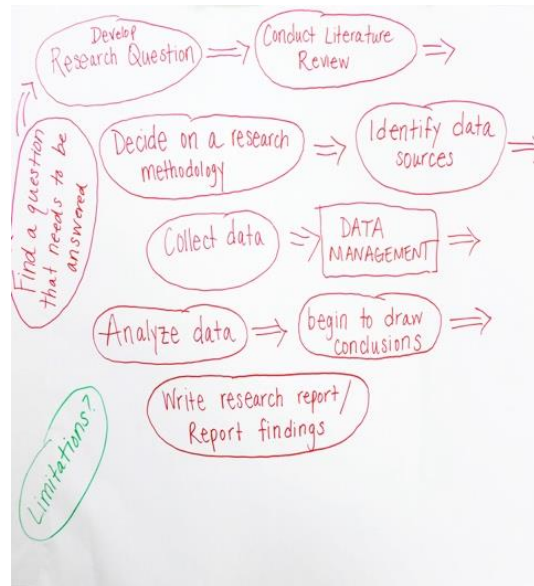 Find a question
that needs to be
answered
Develop
Research Question
Conduct Literature
Review
Decide on a research
methodology
Identify data
sources
Collect data
DATA
MANAGEMENT
Analyze data
begin to draw
conclusions
Write research report/
Report findings
Limitations?